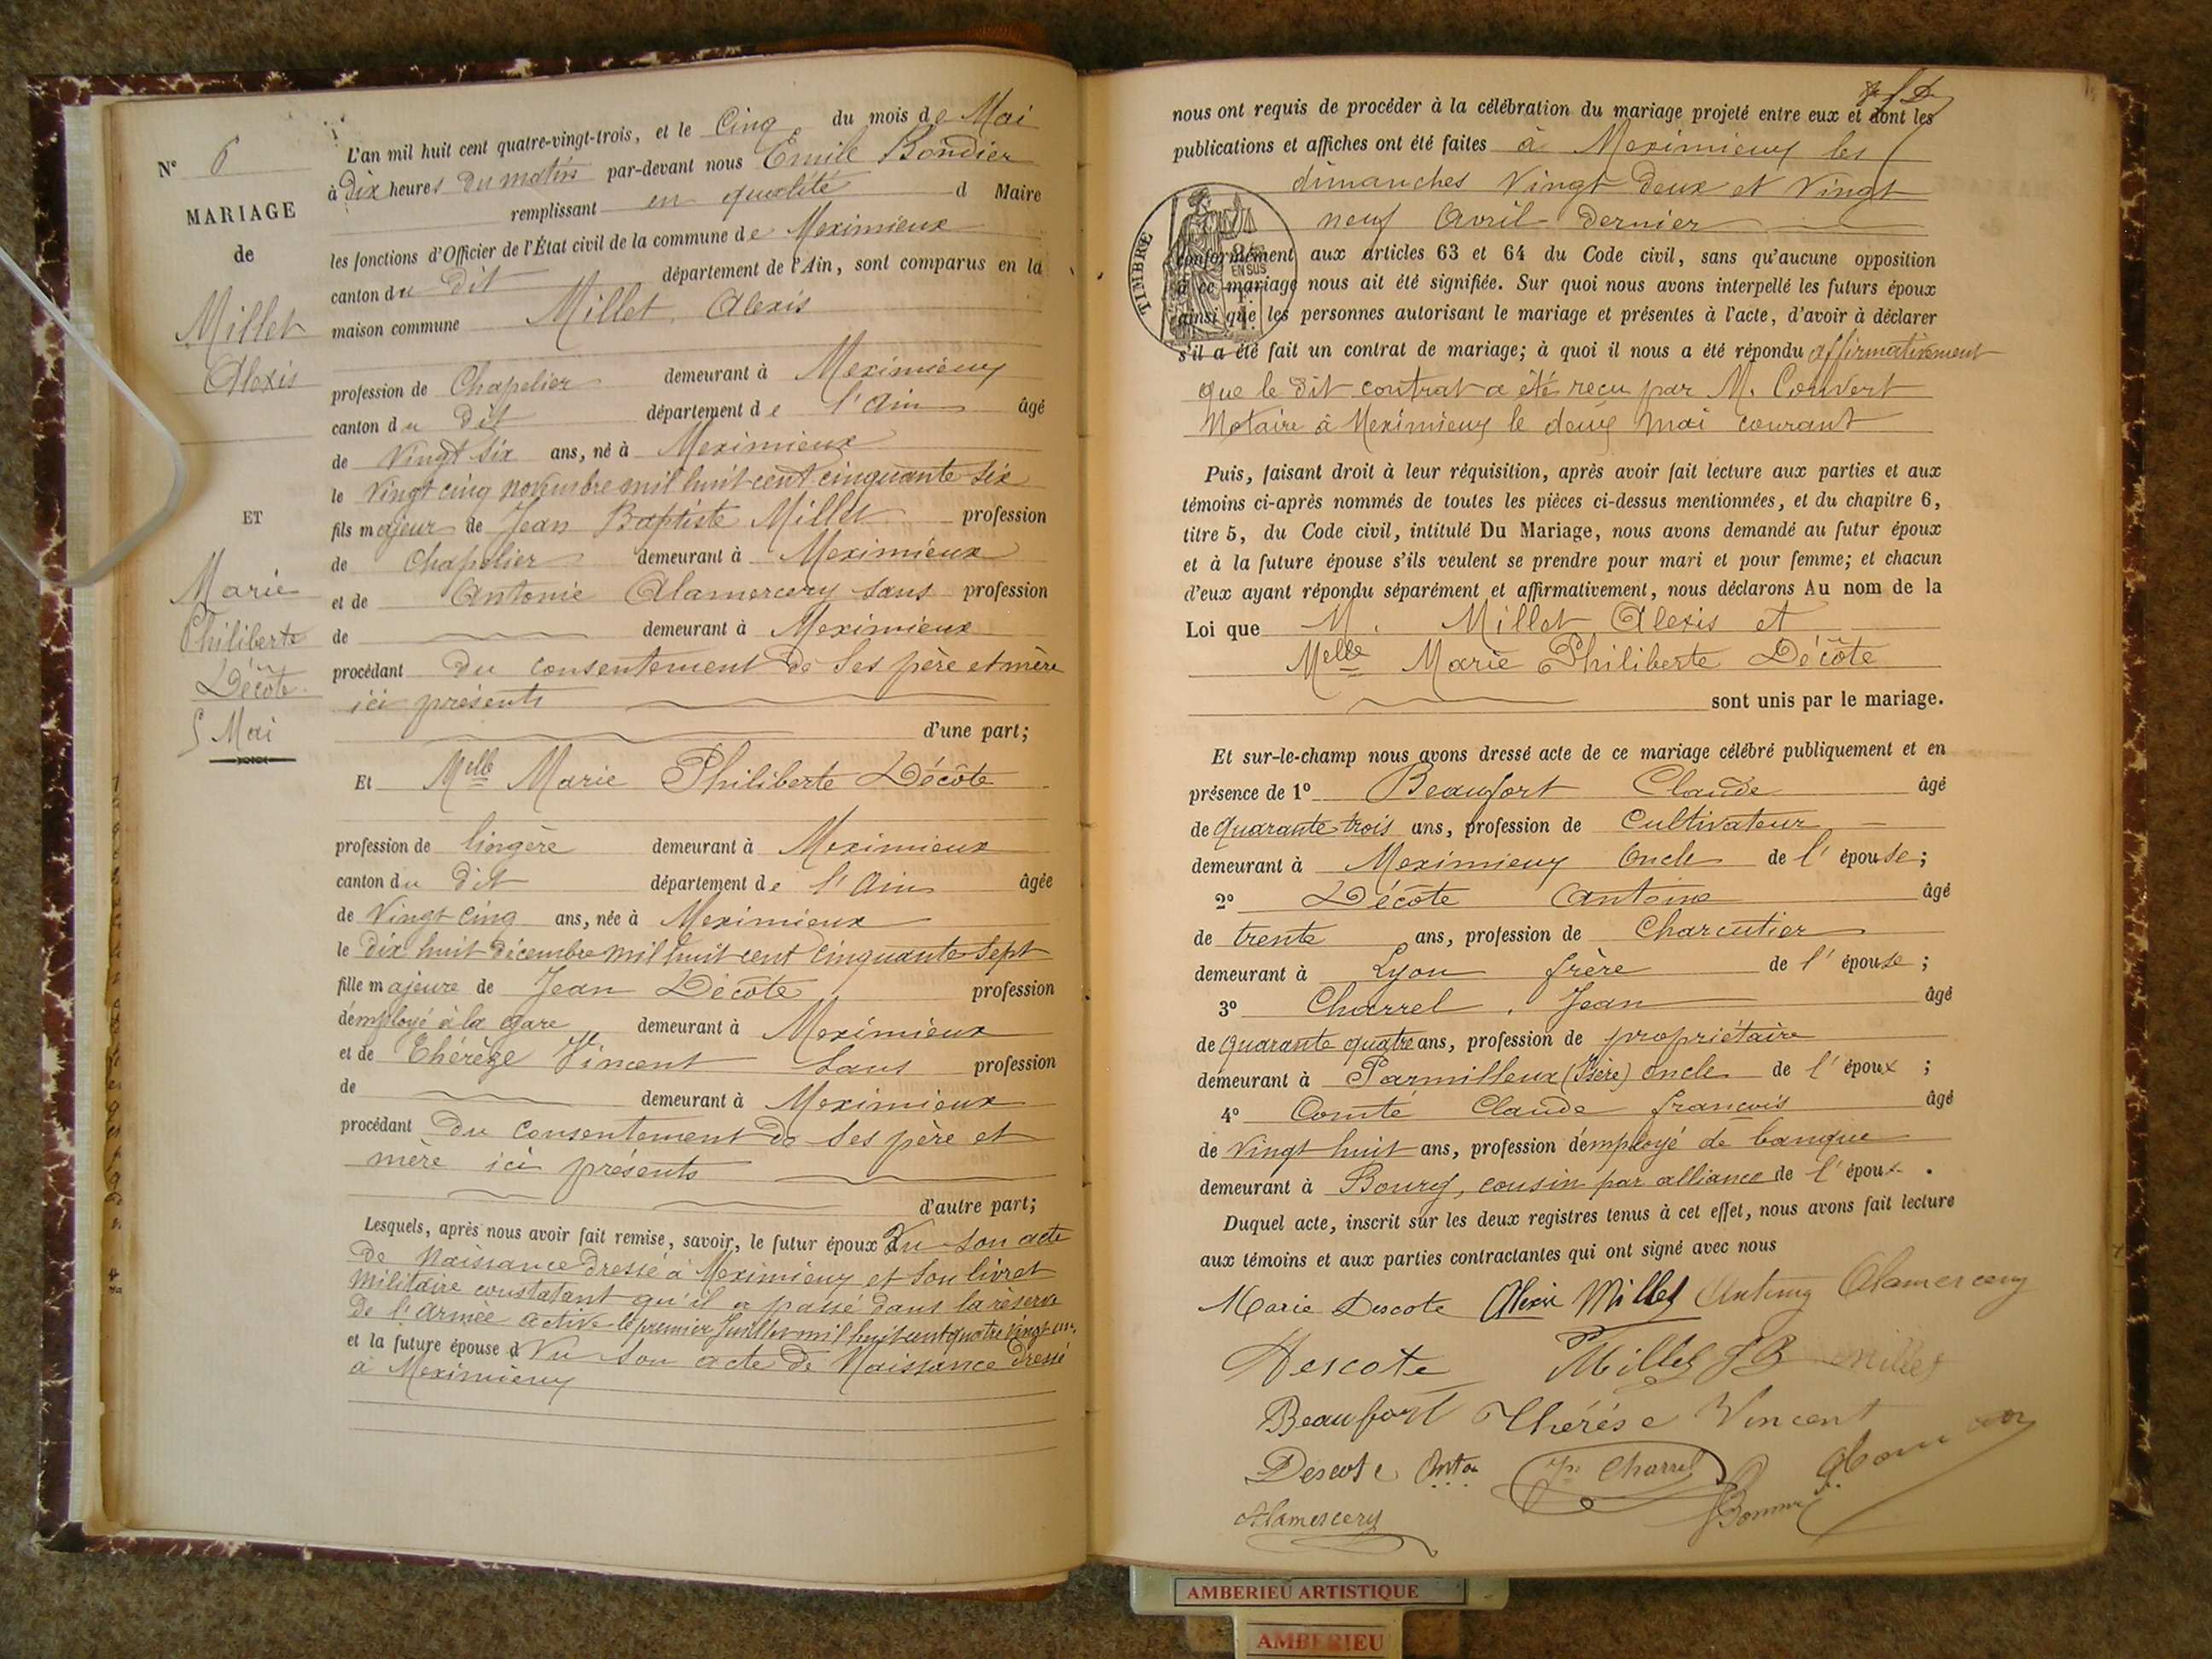 N° 6
MARIAGE
de
Millet
Alexis
ET
Marie
Philiberte
Décôte
5 Mai
L'an mil huit cent quatre-vingt-trois, et le Cinq du mois de Mai
à Dix heures du matin par-devant nous Emile Bondier
remplissant en qualité d Maire
les fonctions d'Officier de l'État civil de la commune de Meximieux
canton du dit département de l'Ain, sont comparus en la
maison commune Millet, Alexis
profession de Chapelier demeurant à Meximieux
canton du dit département de l'Ain âgé
de Vingt six ans, né à Meximieux
le Vingt cinq novembre mil huit cent cinquante six
fils majeur de Jean Baptiste Millet profession
de Chapelier demeurant à Meximieux
et de Antonie Alamercery sans profession
de demeurant à Meximieux
procédant du consentement de ses père et mère
ici présents
d'une part;
Et Melle Marie Philiberte Décôte
profession de lingère demeurant à Meximieux
canton du dit département de l'Ain âgée
de Vingt cinq ans, née à Meximieux
le dix huit décembre mil huit cent cinquante sept
fille majeure de Jean Décote profession
d'employé à la gare demeurant à Meximieux
et de Thérèze Vincent sans profession
de demeurant à Meximieux
procédant du consentement de ses père et
mère ici présents
d'autre part;
Lesquels, après nous avoir fait remise, savoir, le futur époux Vu son acte
de Naissance dressé à Meximieux et son livret
militaire constatant qu'il a passé dans la réserve
de l'armée active le premier Juillet mil huit cent quatre vingt un.
et la future épouse d Vu son acte de Naissance dressé
à Meximieux
nous ont requis de procéder à la célébration du mariage projeté entre eux et dont les
publications et affiches ont été faites à Meximieux les
dimanches Vingt deux et Vingt
neuf Avril dernier
TIMBRE
EN SUS
conformément aux articles 63 et 64 du Code civil, sans qu'aucune opposition
à ce mariage nous ait été signifiée. Sur quoi nous avons interpellé les futurs époux
ainsi que les personnes autorisant le mariage et présentes à l'acte, d'avoir à déclarer
s'il a été fait un contrat de mariage; à quoi il nous a été répondu affirmativement
que le dit contrat a été reçu par M. Convert
Notaire à Meximieux le deux mai courant
Puis, faisant droit à leur réquisition, après avoir fait lecture aux parties et aux
témoins ci-après nommés de toutes les pièces ci-dessus mentionnées, et du chapitre 6,
titre 5, du Code civil, intitulé Du Mariage, nous avons demandé au futur époux
et à la future épouse s'ils veulent se prendre pour mari et pour femme; et chacun
d'eux ayant répondu séparément et affirmativement, nous déclarons Au nom de la
Loi que M. Millet Alexis et
Melle Marie Philiberte Décôte
sont unis par le mariage.
Et sur-le-champ nous avons dressé acte de ce mariage célébré publiquement et en
présence de 1° Beaufort Claude âgé
de quarante trois ans, profession de Cultivateur
demeurant à Meximieux Oncle de l'épouse;
2° Décôte Antoine âgé
de trente ans, profession de Charcutier
demeurant à Lyon frère de l'épouse;
3° Charrel, Jean âgé
de quarante quatre ans, profession de propriétaire
demeurant à Parmilleux (Isère) oncle de l'époux;
4° Comté Claude françois âgé
de Vingt huit ans, profession d'employé de banque
demeurant à Bourg, cousin par alliance de l'époux.
Duquel acte, inscrit sur les deux registres tenus à cet effet, nous avons fait lecture
aux témoins et aux parties contractantes qui ont signé avec nous
Marie Descote Alexis Millet Alamercery
Descote Millet JB Millet
Beaufort Thérése Vincent
Descote Anton Charrel
Alamercery
AMBERIEU ARTISTIQUE
AMBERIEU